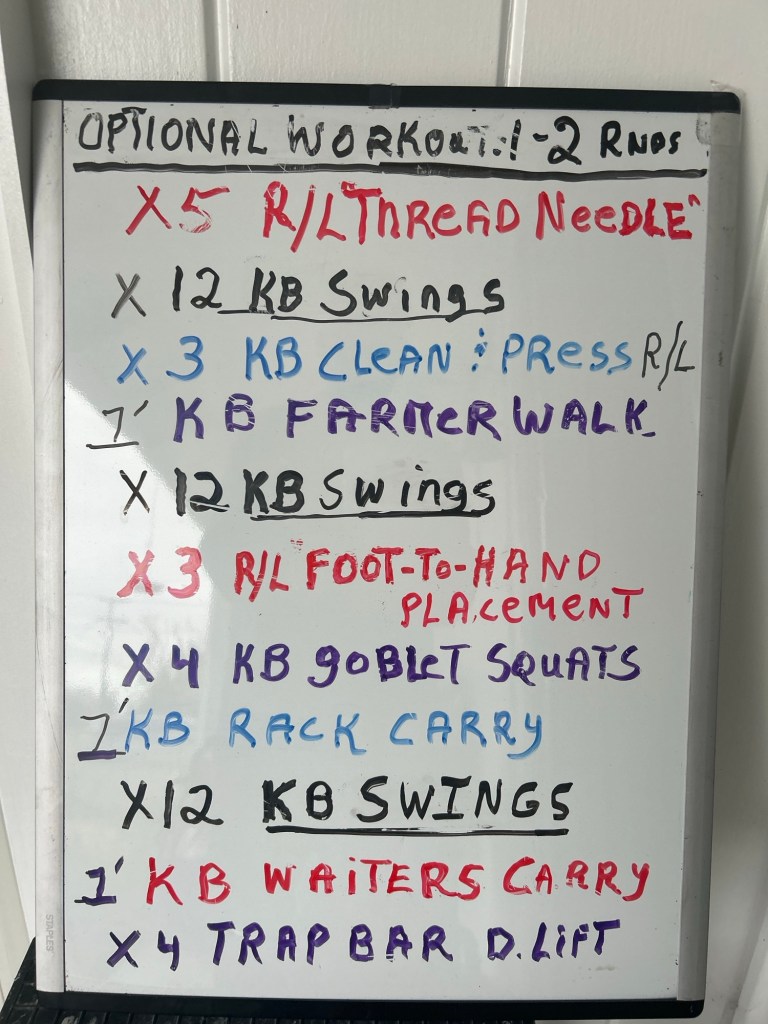 OPTIONAL WORKOUT: 1-2 RNDS
X5 R/L "THREAD NEEDLE"
X 12 KB Swings
X 3 KB CLEAN & PRESS R/L
1' KB FARMER WALK
X 12 KB Swings
X 3 R/L FOOT-To-HAND
PLACEMENT
X 4 KB gOBLET SQUATS
1' KB RACK CARRY
X12 KB SWINGS
1' KB WAiTERS CARRY
X 4 TRAP BAR D. LiFT
STAPLES